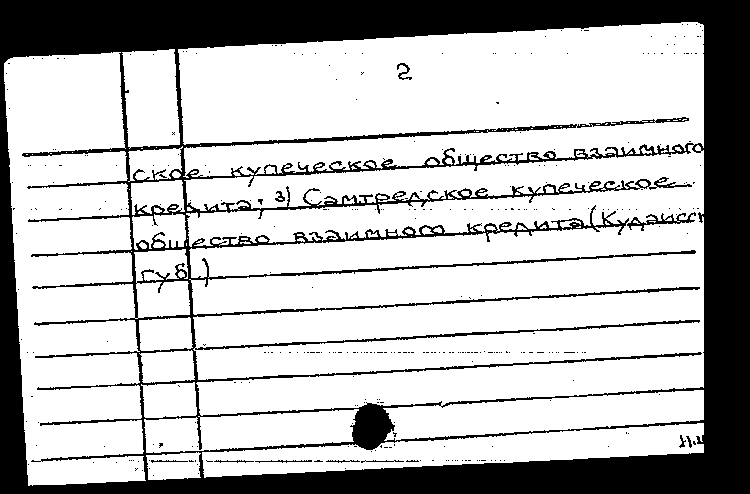 2
ское купеческое общество взаимного
кредита; 3) Самтредское купеческое
общество взаимного кредита (Кудаисск
губ.)